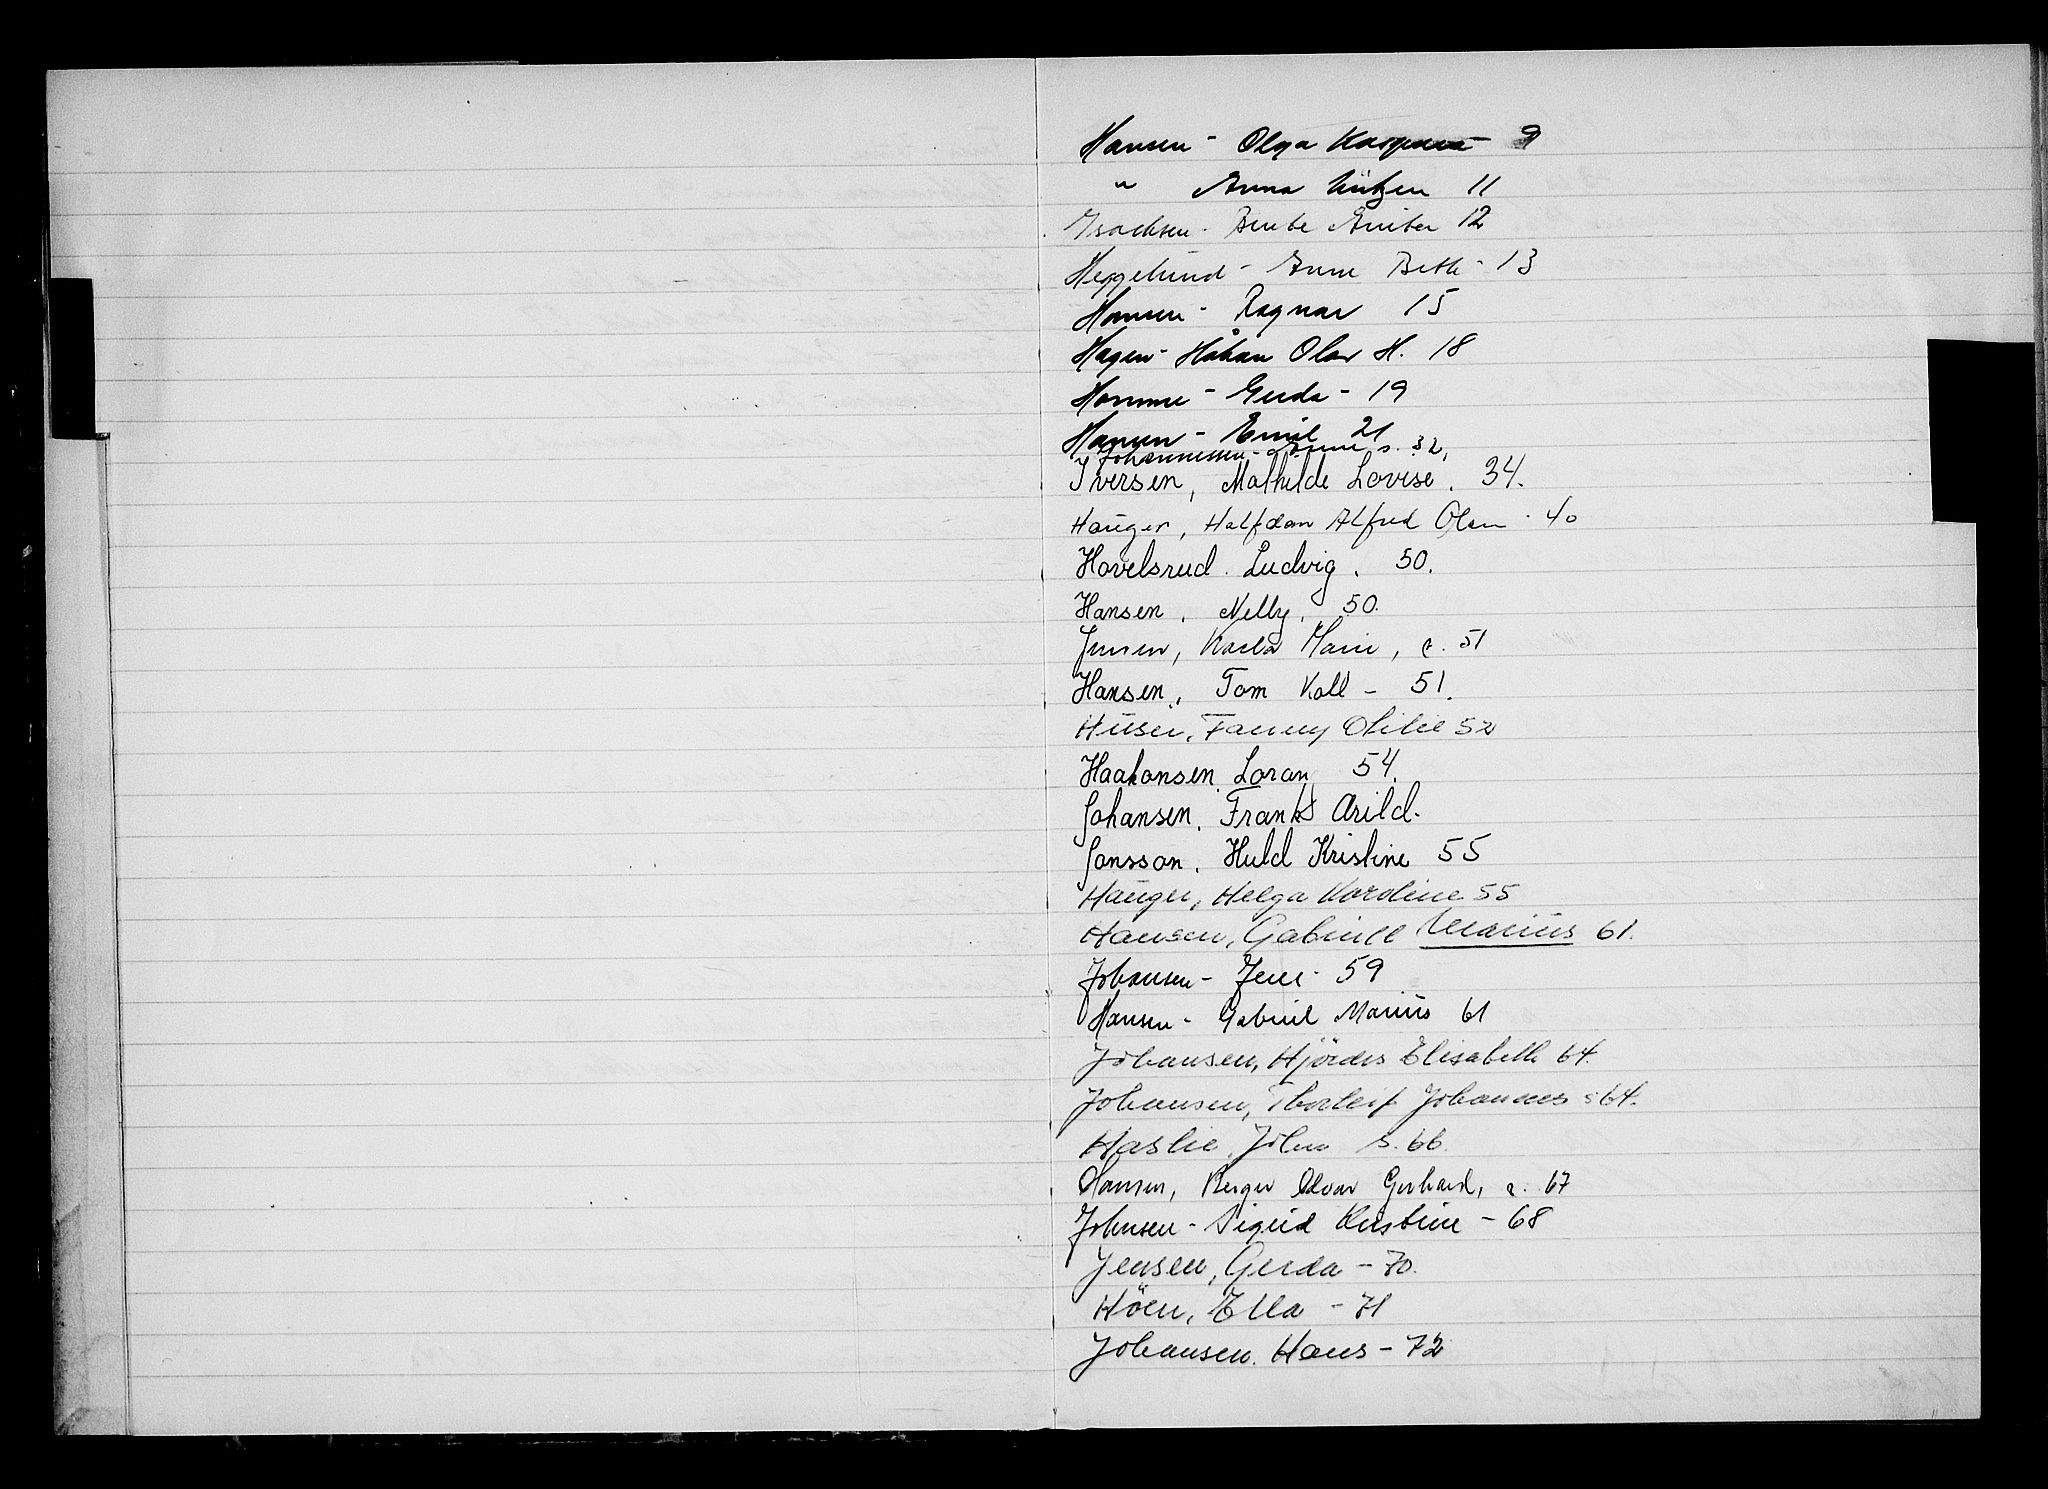 Hansen - Olga Kaspara 9
" Anna 11
Isachsen - Bente 12
Heggelund - Anne Beth - 13
Hansen - Ragnar 15
Hagen - Håkan Olav H. 18
Homme - Gerda - 19
Hansen - Emil 21
Johannessen - Anne s. 32,
Iversen, Mathilde Lovise. 34.
Hauger, Halfdan Alfred Olsen - 40
Hovelsrud. Ludvig. 50.
Hansen, Nelly, 50.
Jensen, Karla Marie, s. 51
Hansen, Tom Koll - 51.
Husen, Fanny Otilie 52
Haakonsen, Loran 54.
Johansen, Frank Arild.
Jonsson, Huld Kristine 55
Hauger, Helga Karoline 55
Hansen, Gabriell Marius 61.
Johansen - Jens - 59
Hansen - Gabriel Marius 61
Johansen, Hjördis Elisabeth 64.
Johansen, Thorleif Johannes s 64.
Haslie, John s. 66.
Hansen, Birger Edvar Gerhard, s. 67
Johnsen - Sigrid Kristine - 68
Jensen, Gerda - 70.
Höen, Ella - 71
Johansen. Hans - 72